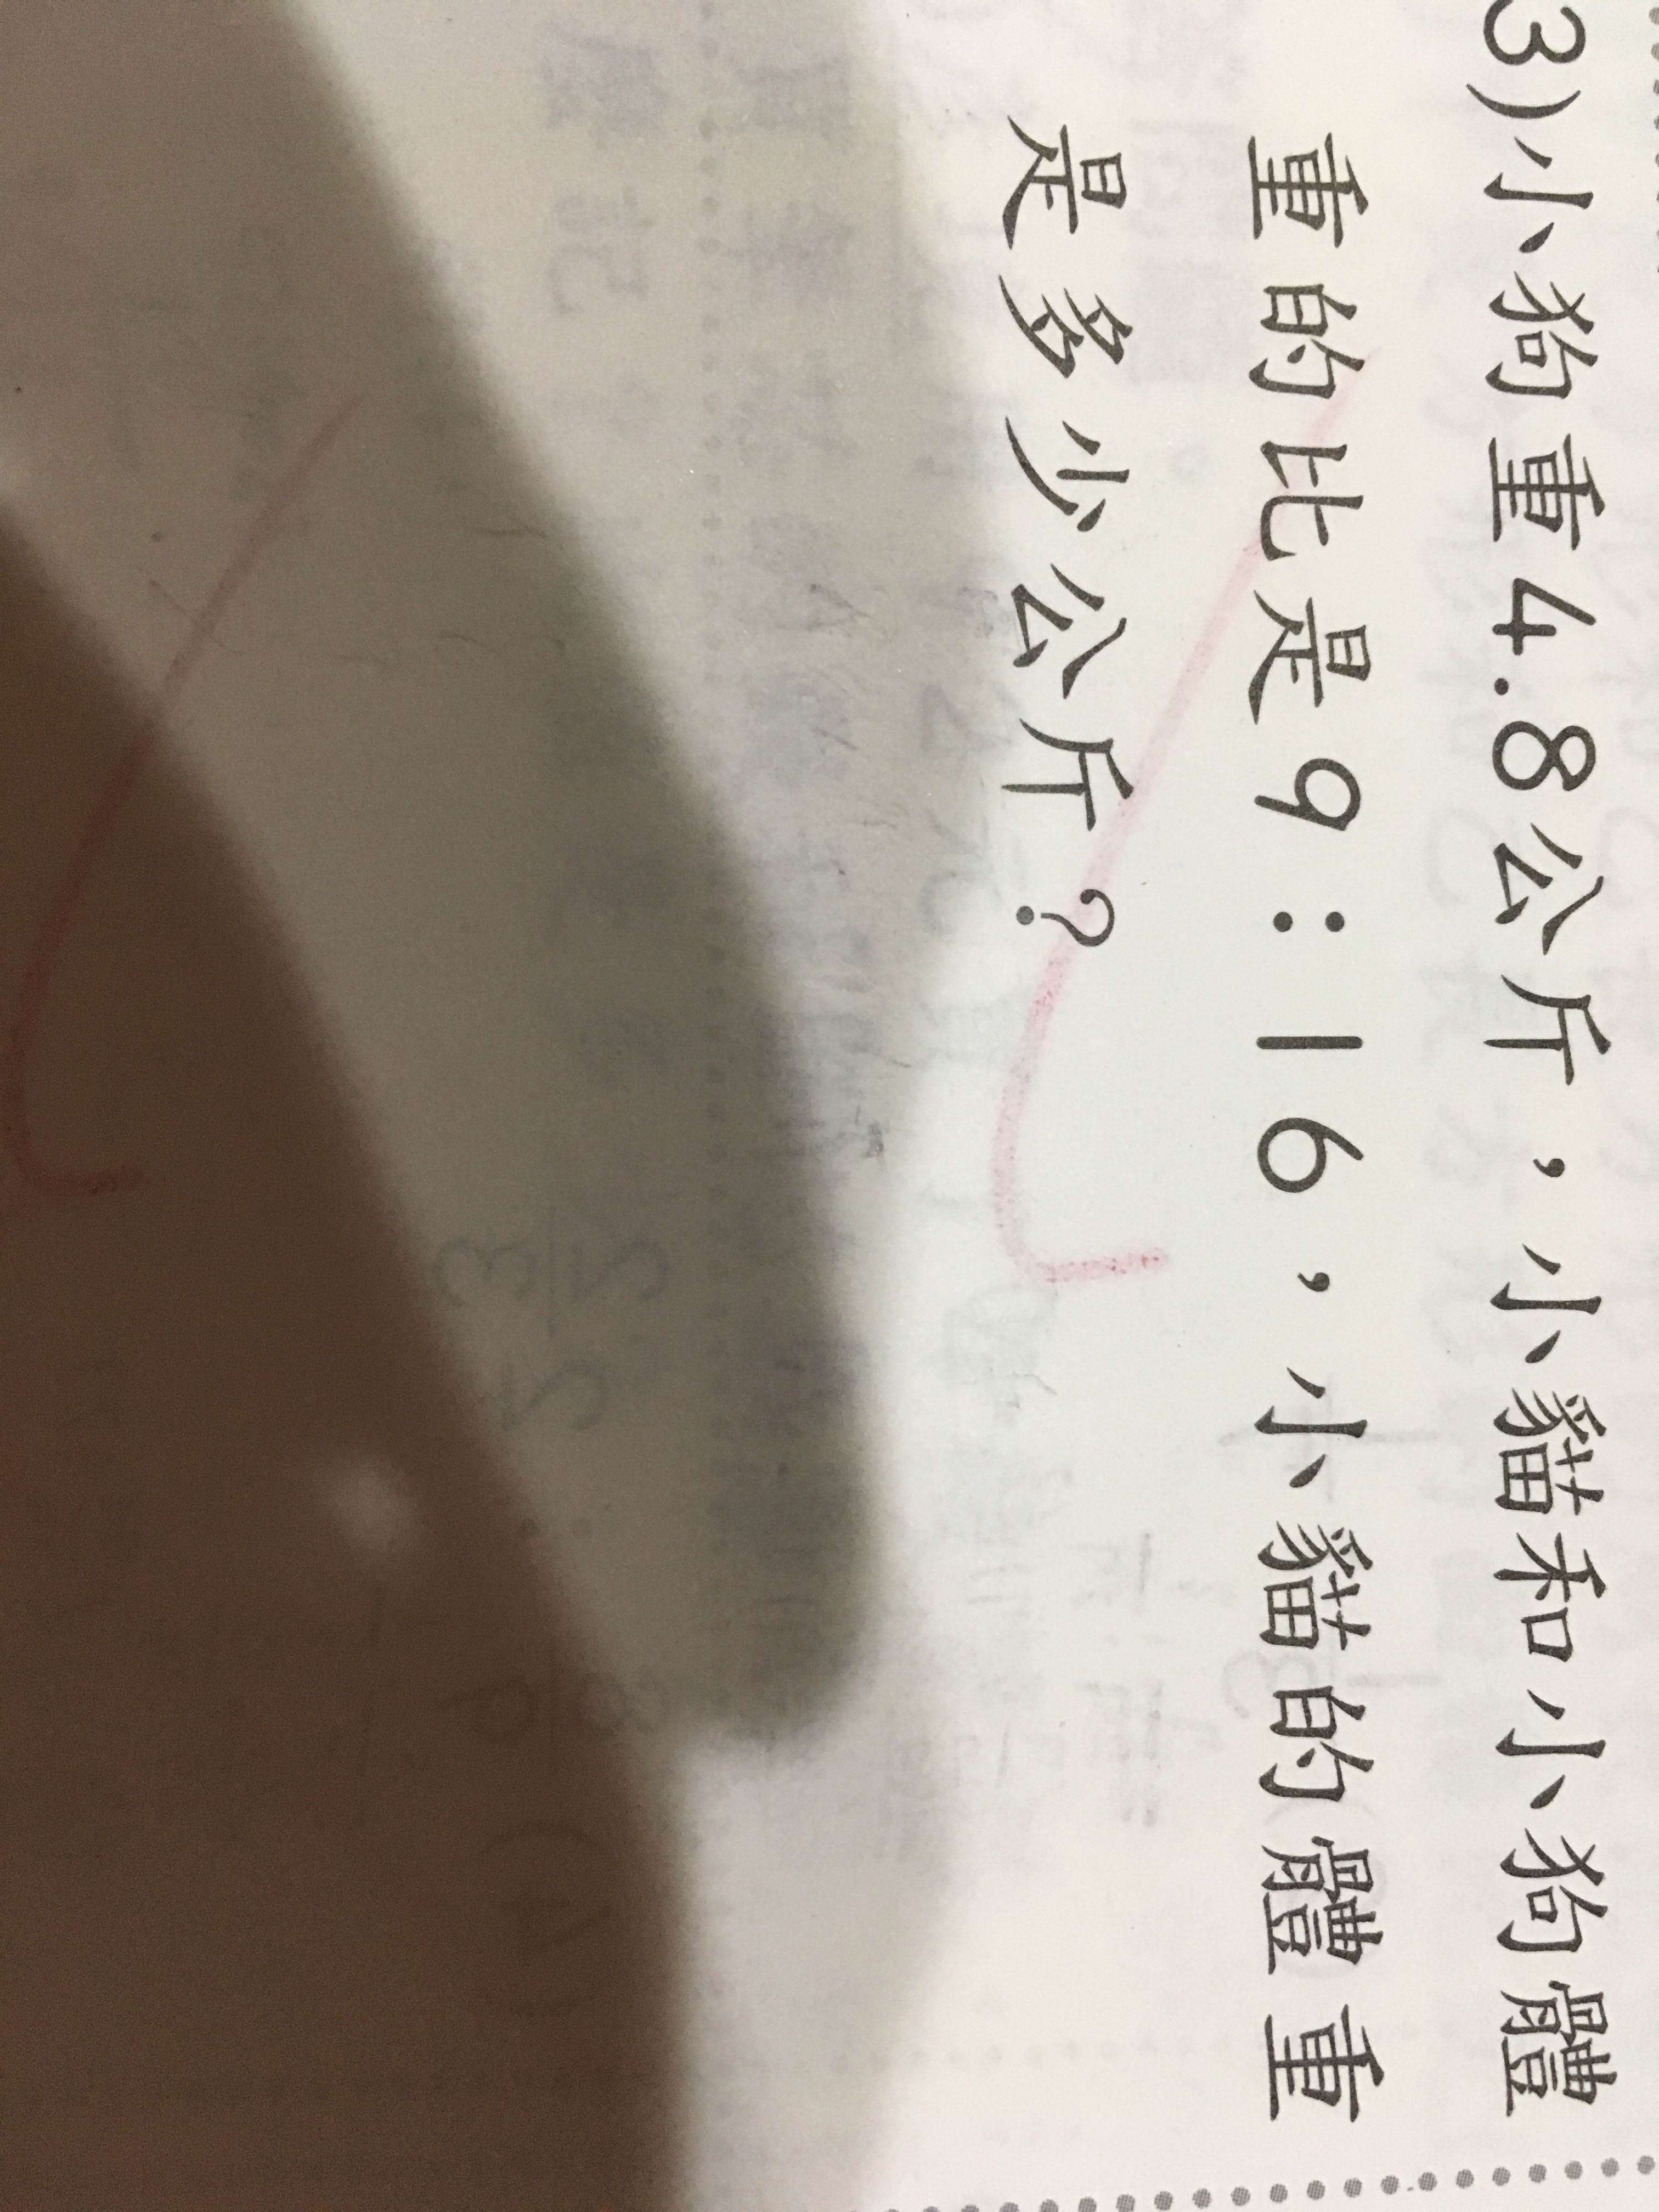 3)小狗重4.8公斤，小貓和小狗體
重的比是9：16，小貓的體重
是多少公斤？